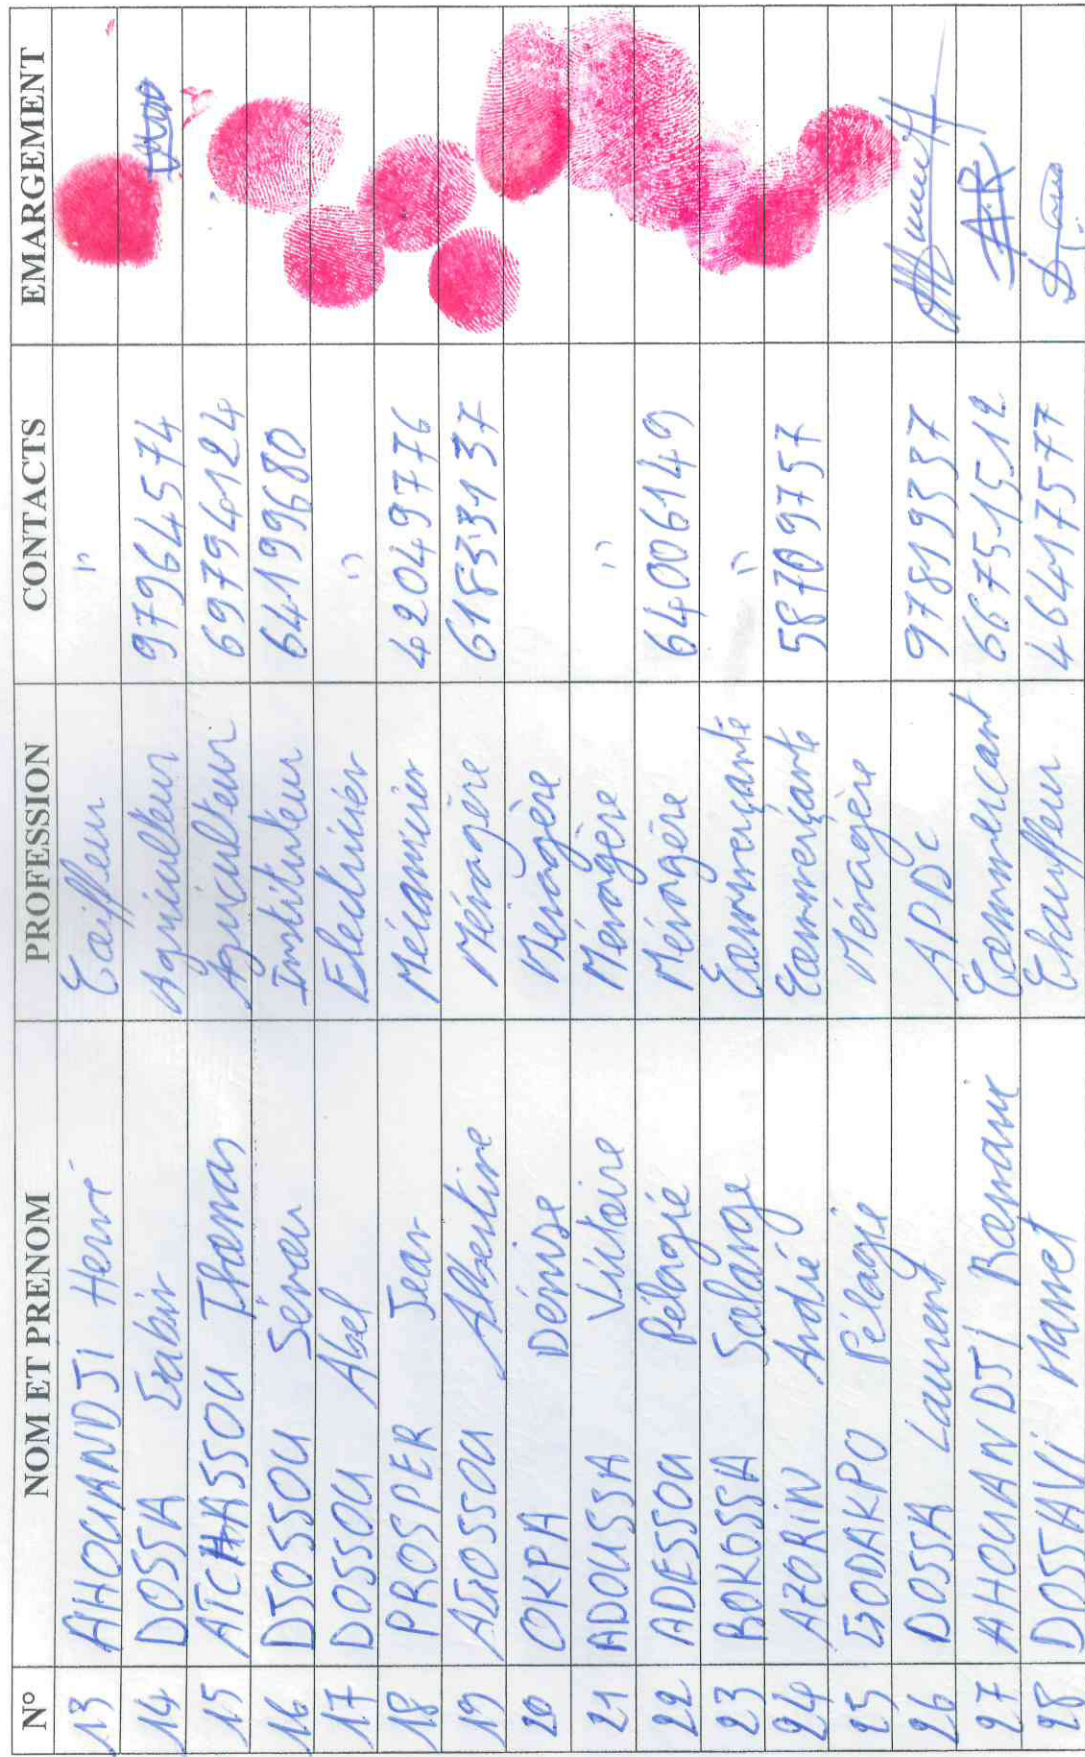 N° NOM ET PRENOM PROFESSION CONTACTS EMARGEMENT
13 AHOUANDJI Hervé Coiffeur "
14 DOSSA Sabin Agriculteur 97964574
15 ATCHASSOU Thomas Agriculteur 69794124
16 DJOSSOU Sénou Instituteur 64199680
17 DOSSOU Abel Electricien "
18 PROSPER Jean Mécanicien 42049776
19 AGOSSOU Albertine Ménagère 61833137
20 OKPA Dénise Ménagère
21 ADOUSSA Victoire Ménagère "
22 ADESSOU Pélagie Ménagère 64006149
23 BOKOSSA Solange Commerçante "
24 AZORIN André Commerçant 58709757
25 GODAKPO Pélagie Ménagère
26 DOSSA Laurent APDC 97819337
27 AHOUANDJI Romaric Commercant 66751512 A.R
28 DOSSAVI Hamet Chauffeur 46417577